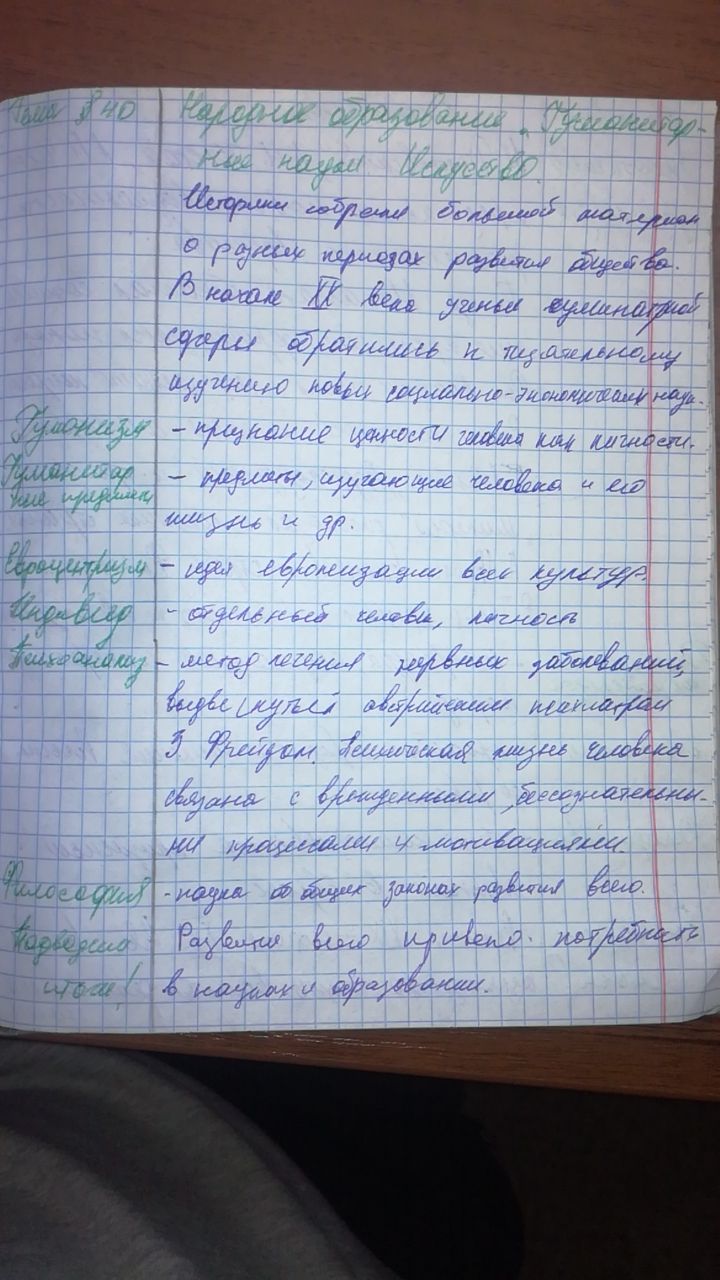 Тема § 40 Народное образование. Гуманитар-
ные науки Искусство.
Историки собрали большой материал
о разных периодах развития общества.
В начале XX века ученые гуминатрной
сферы обратились к тщательному
изучению новых социально-экономических наук.
Гуманизм - признание ценности человека как личности.
Гуманитар - предметы, изучающие человека и его
ные предметы
жизнь и др.
Евроцентризм - идея европеизации всех культур.
Индивид - отдельный человек, личность
Психоанализ - метод лечения нервных заболеваний,
выдвинутый австрийским психиатром
З. Фрейдом. Психическая жизнь человека
связана с врожденными, бессознательны-
ми процессами и мотивациями.
Философия - наука об общих законах развития всего.
Подведем Развитие всего привело потребность
итоги! в науках и образовании.